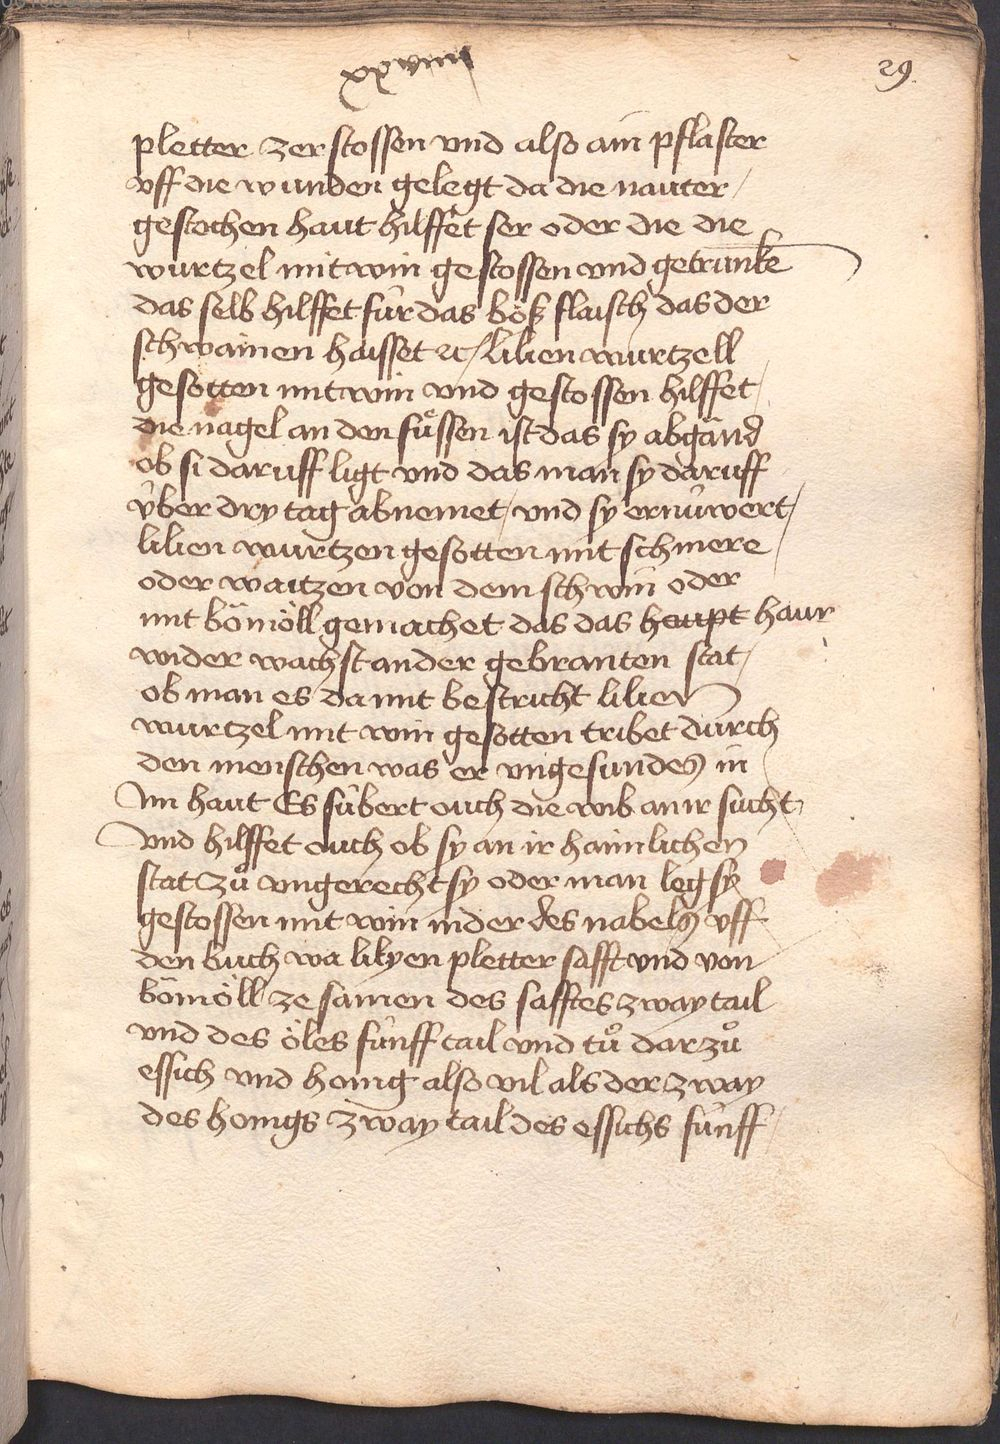 xxviiii
29.
pletter zerstossen vnd also ain pflaster
vff die wunden gelegt da die nauter /
gestochen haut hilffet ser oder die die
wurtzel mit win gestossen vnd getrunke
das selb hilffet für das böß flaisch das der
schwainen haisset ꝛc / lilien wurtzell
gesotten mit win vnd gestossen hilffet /
die nagel an den fuͤssen ist das sy abgänd
ob si daruff ligt vnd das man sy daruff
über dry tag abnemet / vnd sy ernüwert /
lilien wurtzen gesotten mit schmere /
oder waitzen von dem schwin oder
mit bömöll gemachet das das heupt haur
wider wachst an der gebranten stat /
ob man es da mit bestricht lilien
wurtzel mit win gesotten tribet durch
den menschen was er vngesundes in
Im haut Es sübert ouch die wib an ir sucht /
vnd hilffet ouch ob sy an ir haimlichen
stat zuͦ vngerecht sy oder man leg sy
gestossen mit win nider des nabels vff
den buch wa lilyen pletter safft vnd von
bömöll ze samen des safftes zway tail
vnd des öles fünff tail vnd tuͦ dar zuͦ
essich vnd honig also vil als der zway
des honigs zway tail des essichs fünff /